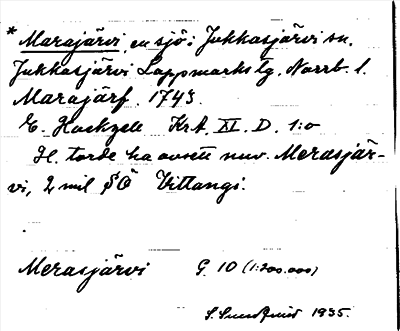 * Marajärvi, en sjö i Jukkasjärvi sn.
Jukkasjärvi Lappmarks tg. Norrb. l.
Marajärf. 1743.
E. Hackzell KrA, XI. D. 1:o
H. torde ha avsett nuv. Merasjär-
vi, 2 mil SÖ Vittangi.
Merasjärvi G. 10 (1:200.000)
S. Sundqvist 1935.